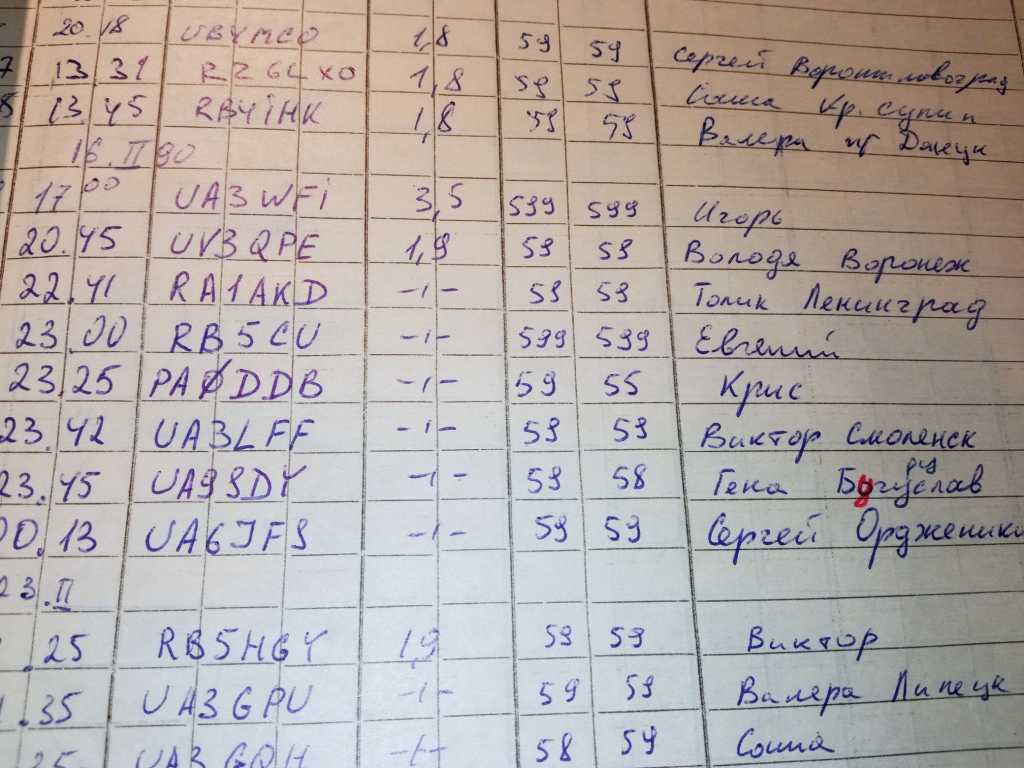 20.18 UB4MCO 1,8 59 59 Сергей Ворошиловоград
13.31 RZ6LXO 1,8 59 59 Саша
13.45 RB4IHK 1,8 59 59 Валера Донецк
16.II 90
17 00 UA3WFi 3,5 599 599 Игорь
20.45 UV3QPE 1,9 59 59 Володя Воронеж
22.41 RA1AKD -ı- 59 59 Толик Ленинград
23.00 RB5CU -ı- 599 599 Евгений
23.25 PAØDDB -ı- 59 55 Крис
23.42 UA3LFF -ı- 59 59 Виктор Смоленск
23.45 UA9SDY -ı- 59 58 Гена
00.13 UA6JFS -ı- 59 59 Сергей Орджоники
23.II
.25 RB5HGY 1,9 59 59 Виктор
.35 UA3GPU -ı- 59 59 Валера Липецк
UA3GQH -ı- 58 59 Саша